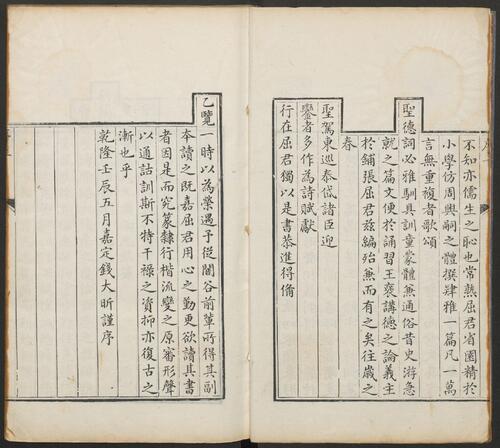 不知亦儒生之恥也常熟屈君省園精於
小學仿周興嗣之體撰肄雅一篇凡一萬
言無重複者歌頌
聖德詞必雅馴具訓童蒙體無通俗昔史游急
就之篇文便於誦習王褒講德之論義主
於鋪張屈君茲編殆無而有之矣往歲之
春
聖駕東巡泰岱諸臣迎
鑾者多作為詩賦獻
行在屈君獨以是書恭進得備
乙覽一時以為榮遇予從閬谷前輩所得其副
本讀之既嘉屈君用心之勤更欲讀其書
者因是而究篆隸行楷流變之原審形聲
以通詁訓斯不特干祿之資抑亦復古之
漸也乎
乾隆壬辰五月嘉定錢大昕謹序